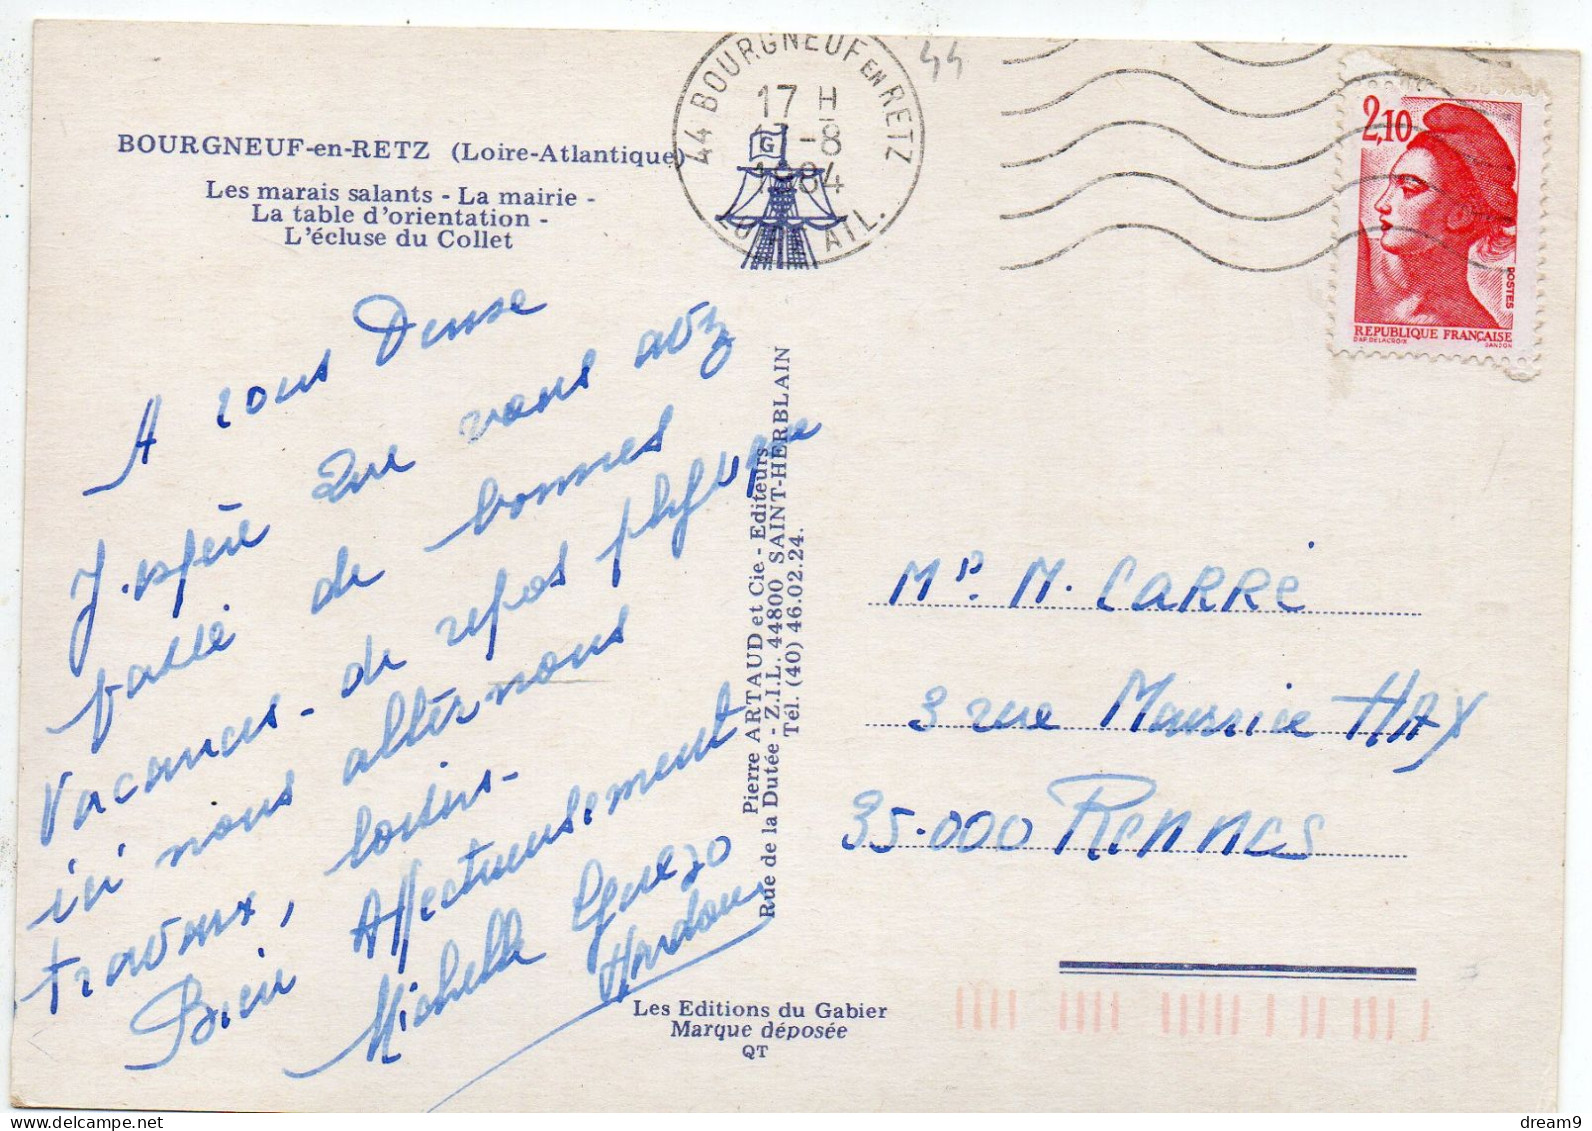 BOURGNEUF-en-RETZ (Loire-Atlantique)
Les marais salants - La mairie -
La table d'orientation -
L'écluse du Collet
44 BOURGNEUF EN RETZ
17 H
-8
LOIRE ATL.
G
44
2,10
POSTES
REPUBLIQUE FRANÇAISE
D'AP. DELACROIX GANDON
A vous Denise
J'espère que vous avez
passé de bonnes
vacances - de repos physique
ici nous alternons
travaux, loisirs -
Bien Affectueusement
Michelle
Pierre ARTAUD et Cie - Editeurs
Rue de la Dutée - Z.I.L. 44800 SAINT-HERBLAIN
Tél. (40) 46.02.24.
M. CARRÉ
3 rue Maurice HAY
35.000 RENNES
Les Editions du Gabier
Marque déposée
QT
dream9